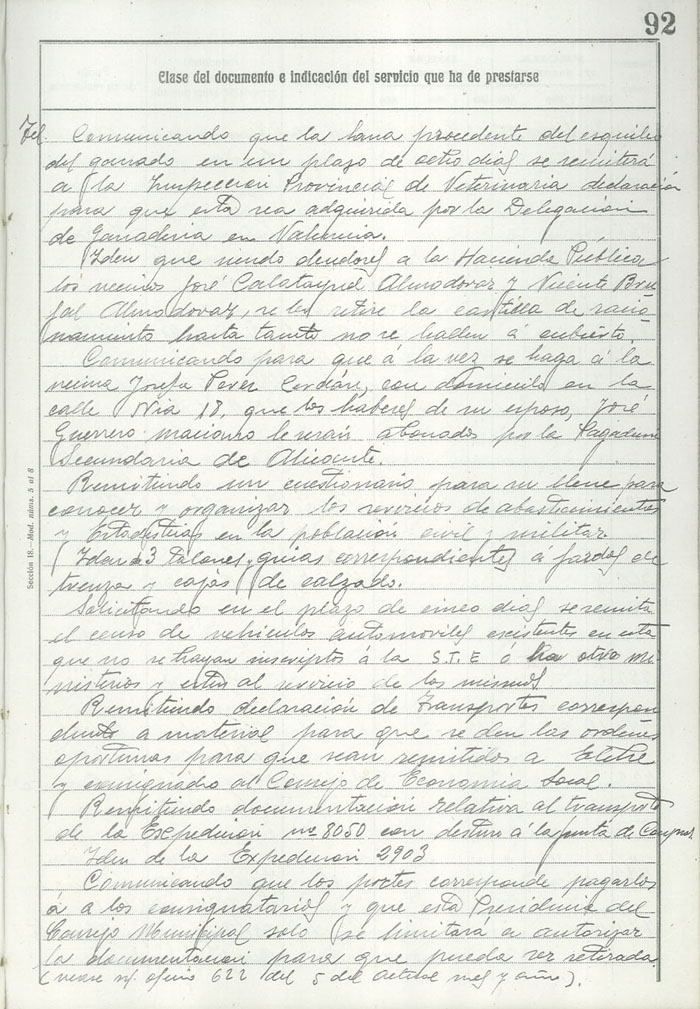 92
Clase del documento e indicación del servicio que ha de prestarse
Tel. Comunicando que la lana procedente del esquileo
del ganado en un plazo de ocho dias se remitirá
a la Inspeccion Provincial de Veterinaria declaración
para que esta sea adquirida por la Delegacion
de Ganaderia en Valencia.
Iden que siendo deudores a la Hacienda Pública
los vecinos José Calatayud Almodovar y Vicente Bru
fal Almodovar, se les retire la cartilla de racio
namiento hasta tanto no se hallen á cubierto.
Comunicando para que á la vez se haga á la
vecina Josefa Perez Cerdán, con domicilio en la
calle Nia 18, que los haberes de su esposo, José
Guerrero Maciano le serán abonados por la Pagaduria
Secundaria de Alicante.
Remitiendo un cuestionario para su llene para
conocer y organizar los servicios de abastecimientos
y Estadisticas en la población civil y militar.
Iden 3 Talones, guias correspondientes á fardos de
trenza y cajas de calzado.
Solicitando en el plazo de cinco dias se remita
el censo de vehiculos automoviles existentes en esta
que no se hayan inscriptos á la S.T.E ó otro mi-
nisterios y esten al servicio de los mismos
Remitiendo declaración de Transportes correspon
diente a material para que se den las ordenes
oportunas para que sean remitidos a Elche
y consignado al Consejo de Economia Local.
Remitiendo documentación relativa al transporte
de la Expedicion nº 8050 con destino á la junta de Compras
Iden de la Expedicion 2903
Comunicando que los portes corresponde pagarlos
á a los consignatarios y que esta Presidencia del
Consejo Municipal solo se limitará a autorizar
la documentacion para que pueda ser retirada
(vease n/. oficio 622 del 5 del actual mes y año).
Sección 18.—Mod. núms. 5 al 8